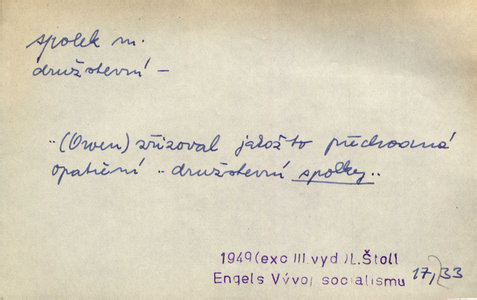 spolek m.
družstevní –
„(Owen) zřizoval jakožto přechodná
opatření „družstevní spolky„
1949 (exc III vyd) L. Štoll
Engels Vývoj socialismu 17, 33